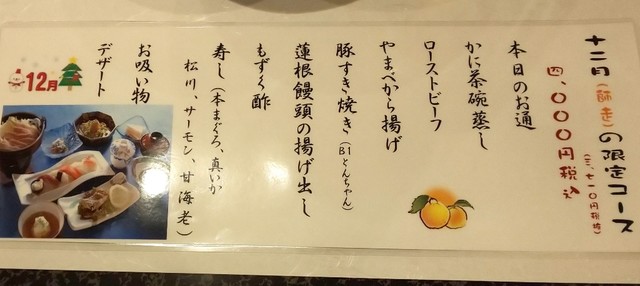 十二月(師走)の限定コース
四、〇〇〇円税込
(三、七一〇円税抜)
本日のお通
かに茶碗蒸し
ローストビーフ
やまべから揚げ
豚すき焼き(B1とんちゃん)
蓮根饅頭の揚げ出し
もずく酢
寿し(本まぐろ、真いか
松川、サーモン、甘海老)
お吸い物
デザート
12月